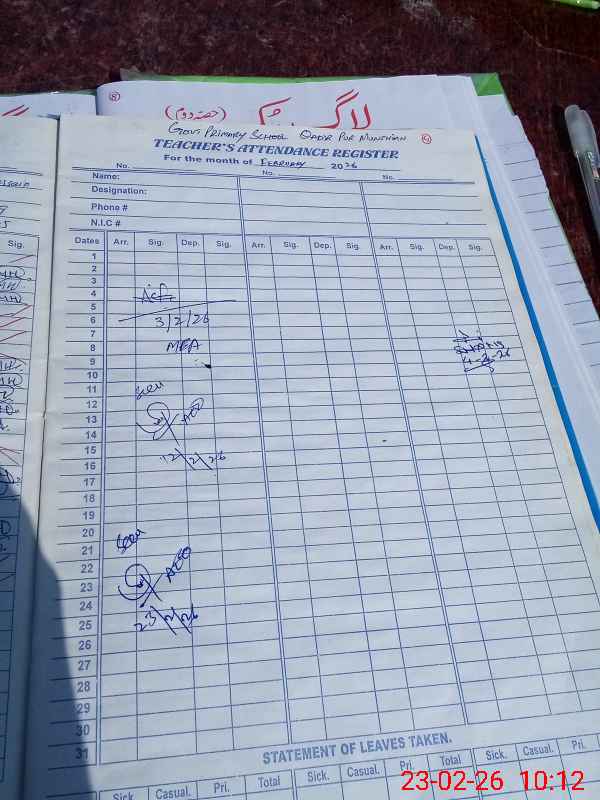 8
لاگ بک (حصہ دوم)
GOVT PRIMARY SCHOOL QADIR PUR MUNSHIAN 4
TEACHER'S ATTENDANCE REGISTER
For the month of FEBRUARY 2026
No. No. No.
Name:
Designation:
Phone #
N.I.C #
Sig. Dates Arr. Sig. Dep. Sig. Arr. Sig. Dep. Sig. Arr. Sig. Dep. Sig.
1
2
3
4
5
6 3/2/26
7
8 MEA
9 4-2-26
10
11 Seen
12
13 AEO
14
15
16 12/2/26
17
18
19
20
21 Seen
22
23 AEO
24
25 23/2/26
26
27
28
29
30
31
STATEMENT OF LEAVES TAKEN.
Sick Casual. Pri. Total Sick. Casual. Pri. Total Sick. Casual. Pri.
23-02-26 10:12